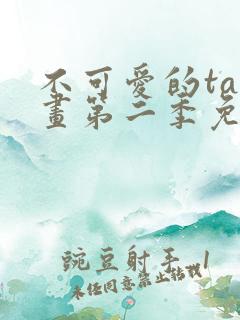 不可愛的ta
畫第二季免
豌豆射手_1
未经同意禁止转载